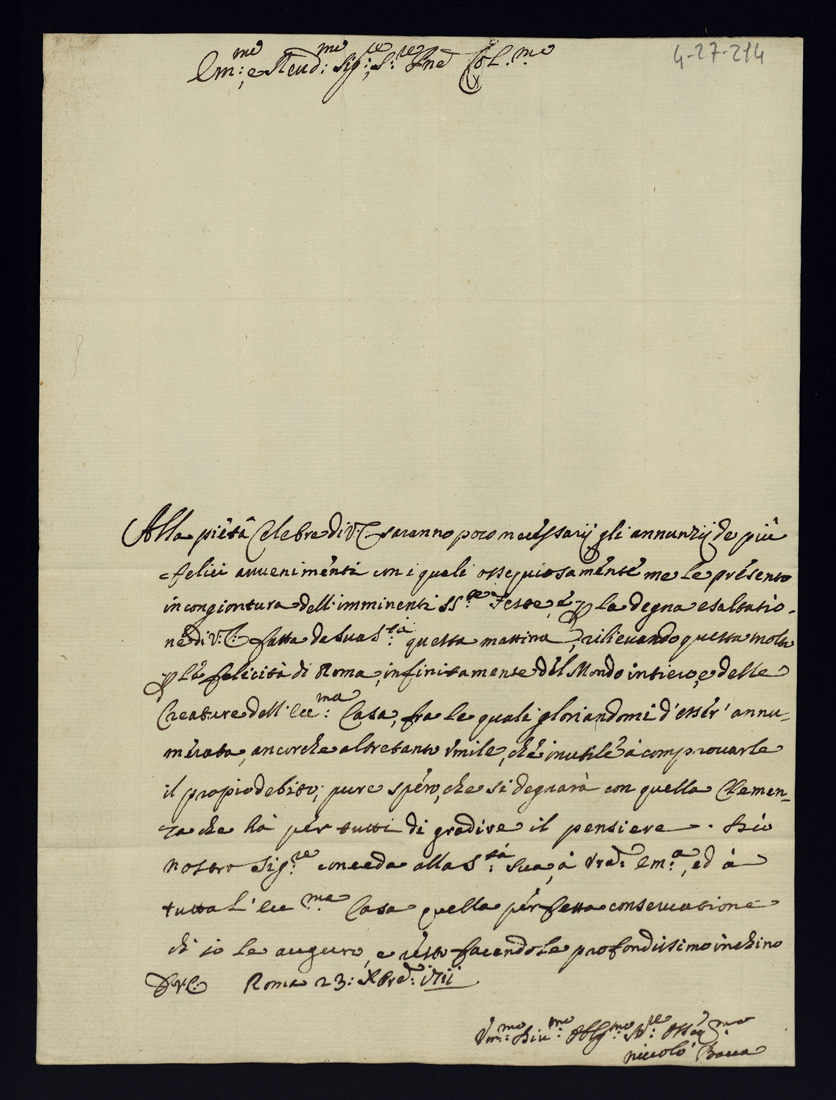 Em:me e Reud:me Sig:re, S:re Pne Col:mo
4-27-214
Alla pietà Celebre di V.E. saranno poco necessarij gli annunzij de più
felici auuenimenti con i quali ossequiosamente me le presento
in congiontura dell'imminenti SS:e Feste, e p la degna esaltatio-
ne di V.E. fatta da Sua S:tà questa mattina, rileuando questa molto
p la felicità di Roma, infinitamente del Mondo intiero, e delle
Creature dell'Ecc:ma Casa, fra le quali gloriandomi d'esser' annu-
merata, ancorche altretanto umile, che inutile à comprouarle
il propio debito; pure spero, che si degnarà con quella Clemen-
za che hà per tutti di gradire il pensiere. Dio
nostro Sig:re conceda alla S:tà Sua, à Vrã Em:a, ed à
tutta l'Ecc:ma Casa quella perfetta conseruatione
ch'io le auguro, e resto facendole profondissimo inchino
D.V.E. Roma 23: Xbre 1711
Um:mo Diu:mo Oblg:mo Sre Osseq:mo
Niccolò Bacca